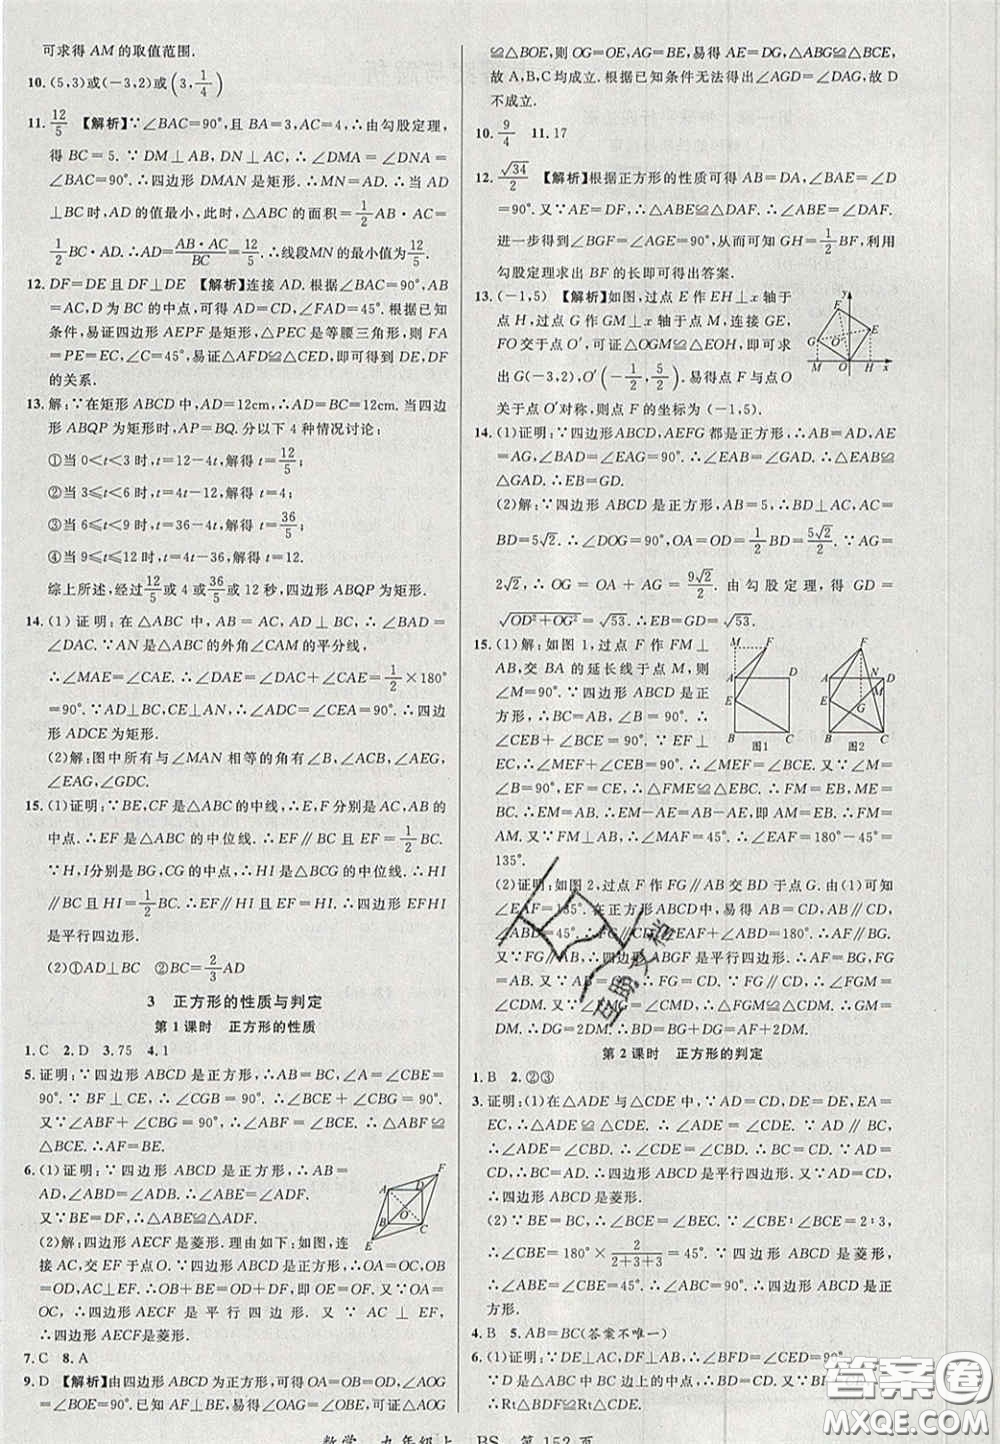 可求得 AM 的取值范围.
10. (5,3)或(-3,2)或(3,1/4)
11. 12/5 【解析】∵∠BAC=90°,且 BA=3,AC=4,∴由勾股定理,
得 BC=5. ∵DM⊥AB,DN⊥AC,∴∠DMA=∠DNA=
∠BAC=90°.∴四边形 DMAN 是矩形.∴MN=AD.∴当 AD
⊥BC 时,AD 的值最小,此时,△ABC 的面积=1/2 AB·AC=
1/2 BC·AD.∴AD=AB·AC/BC=12/5.∴线段MN的最小值为12/5.
12. DF=DE 且 DF⊥DE 【解析】连接 AD.∵∠BAC=90°,AB=
AC,D 为 BC 的中点,可得 AD=CD,∠FAD=45°.根据已知
条件,易证四边形 AEPF 是矩形,△PEC 是等腰三角形,则 FA
=PE=EC,∠C=45°,易证△AFD≌△CED,即可得 DE,DF
的关系.
13. 解:∵在矩形 ABCD 中,AD=12cm,∴AD=BC=12cm.当四边
形 ABQP 为矩形时,AP=BQ.分以下 4 种情况讨论:
①当 0<t<3 时,t=12-4t,解得 t=12/5;
②当 3≤t<6 时,t=4t-12,解得 t=4;
③当 6≤t<9 时,t=36-4t,解得 t=36/5;
④当 9≤t≤12 时,t=4t-36,解得 t=12.
综上所述,经过12/5或 4 或36/5或 12 秒,四边形 ABQP 为矩形.
14. (1)证明:在△ABC 中,AB=AC,AD⊥BC,∴∠BAD=
∠DAC.∵AN 是△ABC 的外角∠CAM 的平分线,
∴∠MAE=∠CAE.∴∠DAE=∠DAC+∠CAE=1/2×180°
=90°.又∵AD⊥BC,CE⊥AN,∴∠ADC=∠CEA=90°.∴四边
形 ADCE 为矩形.
(2)解:图中所有与∠MAN 相等的角有∠B,∠ACB,∠AEG,
∠EAG,∠GDC.
15. (1)证明:∵BE,CF 是△ABC 的中线,∴E,F 分别是 AC,AB 的
中点.∴EF 是△ABC 的中位线.∴EF∥BC 且 EF=1/2 BC.
∵H,I分别是 BG,CG 的中点,∴HI 是△BGC 的中位线.∴HI
∥BC 且 HI=1/2 BC.∴EF∥HI 且 EF=HI.∴四边形 EFHI
是平行四边形.
(2)①AD⊥BC ②BC=2/3 AD
3 正方形的性质与判定
第 1 课时 正方形的性质
1. C 2. D 3. 75 4. 1
5. 证明:∵四边形 ABCD 是正方形,∴AB=BC,∠A=∠CBE=
90°.∵BF⊥CE,∴∠CGB=90°.∴∠BCE+∠CBG=90°,
∠ABF+∠CBG=90°,∴∠BCE=∠ABF.∴△ABF≌
△BCE.∴AF=BE.
6. (1)证明:∵四边形 ABCD 是正方形,∴AB=
AD,∠ABD=∠ADB.∴∠ABE=∠ADF.
又∵BE=DF,∴△ABE≌△ADF.
(2)解:四边形 AECF 是菱形.理由如下:如图,连
接 AC,交 BD 于点 O.∵四边形 ABCD 是正方形,∴OA=OC,OB
=OD,AC⊥EF.∴OB+BE=OD+DF,即 OE=OF.∵OA=
OC,∴四边形 AECF 是平行四边形.又∵AC⊥EF,
∴四边形 AECF是菱形.
7. C 8. A
9. D 【解析】由四边形 ABCD 为正方形,可得OA=OB=OD,∠AOG
=∠BOE=90°.已知 AG=BE,可得 OG=OE,∠AOG≌
≌△BOE,则 OG=OE,∠OAG=∠OBE,易得△AOG≌△BOF,
故 A,B,C 均成立.根据已知条件无法得出∠AGD=∠DAG,故 D
不成立.
10. 9/4 11. 17
12. √34/2 【解析】根据正方形的性质可得 AB=DA,∠BAE=∠D
=90°.又∵AE=DF,∴△ABE≌△DAF.∴∠ABE=∠DAF.
进一步得∠BGF=∠AGE=90°.又可知 GH=1/2 BF,利用
勾股定理求出 BF 的长即可得出答案.
13. (-1,5) 【解析】如图,过点 E 作 EH⊥x 轴于
点 H,过点 G 作 GM⊥x 轴于点 M,连接 GE,
FO 交于点 O′,可证△OGM≌△EOH,即可求
出 G(-3,2),O′(-1/2,5/2).易得点 F 与点 O
关于点 O′对称,则点 F 的坐标为(-1,5).
14. (1)证明:∵四边形 ABCD,AEFG 都是正方形,∴AB=AD,AE
=AG,∠BAD=∠EAG=90°.∴∠EAB=∠GAD.∴△EAB≌
△GAD.∴EB=GD.
(2)解:∵四边形 ABCD 是正方形,AB=5,∴BD⊥AC,AC=
BD=5√2.∴∠DOG=90°,OA=OD=1/2 BD=5√2/2.∵AG=
2√2,∴OG=OA+AG=9√2/2.由勾股定理,得 GD=
√OD²+OG²=√53.∴EB=√53.
15. (1)解:如图 1,过点 F 作 FM⊥
AB,交 BA 的延长线于点 M,则
∠M=90°.∵四边形 ABCD 是正方
形,∴BC=AB,∠B=∠M=90°.
∴∠CEB+∠BCE=90°.∵EF⊥
CE,∴∠CEB+∠FEM=90°.
∴∠FEM=∠BCE.又∵CE=EF,∴△FEM≌△ECB.
∴FM=BE,EM=BC.∴EM=AB.∴EM-AE=AB-AE,即 AM
=BE.∴FM=AM.∵FM⊥AB,∴∠MAF=45°.∴∠EAF=180°-45°=
135°.
(2)证明:如图 2,过点 F 作 FG∥AB 交 BD 于点 G.由(1)可知
∠EAF=135°.在正方形ABCD 中,AB∥CD,AB=CD,
∠ABD=45°.∴FG∥CD,∠EAF+∠ABD=180°.∴AF∥BG.
又∵FG∥AB,∴四边形 ABGF 是平行四边形.∴AF=BG,
FG=AB.∴FG=CD.∵FG∥CD,∴∠FGM=∠CDM.
又∵∠GMF=∠DMC,∴△FGM≌△CDM.∴GM=
DM.∴DG=2DM.∴BD=BG+DG=AF+2DM.
第 2 课时 正方形的判定
1. B 2. ②③
3. 证明:(1)在△ADE 与△CDE 中,∵AD=CD,DE=DE,EA=
EC,∴△ADE≌△CDE.∴∠ADE=∠CDE.∵AD∥BC,
∴∠ADE=∠CBD.∴∠CDE=∠CBD.∴BC=CD.∵AD=
CD,∴BC=AD.∴四边形ABCD 是平行四边形.∵AD=CD,
∴四边形 ABCD 是菱形.
(2)∵BE=BC,∴∠BCE=∠BEC.∵∠CBE:∠BCE=2:3,
∴∠CBE=180°×2/(2+3+3)=45°.∵四边形 ABCD 是菱形,
∴∠ABE=∠CBE=45°.∴∠ABC=90°.∴四边形 ABCD 是正
方形.
4. B 5. AB=BC(答案不唯一)
6. (1)证明:∵DE⊥AC,DF⊥AB,∴∠BFD=∠CED=90°.
又∵BD=CD,BF=CE,
∴Rt△BDF≌Rt△CDE.
数学 九年级上 BS 第 152 页
图1
图2
互助文档
答案圈
MXQE.COM